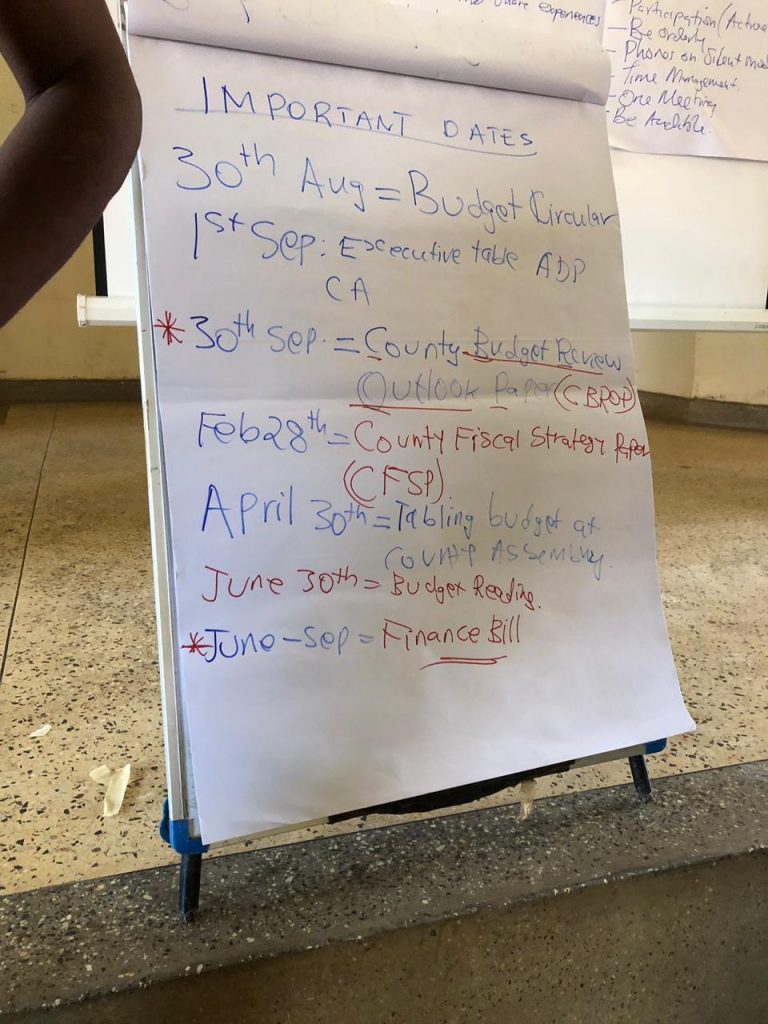 share experiences
- Participation (Active
- Be orderly
- Phones on Silent mode
- Time Management.
- One Meeting
- Be Audible.
IMPORTANT DATES
30th Aug = Budget Circular
1st Sep: Executive table ADP
CA
* 30th Sep. = County Budget Review
Outlook Paper (CBROP)
Feb 28th = County Fiscal Strategy Paper
(CFSP).
April 30th = Tabling budget at
County Assembly.
June 30th = Budget Reading.
* June - Sep = Finance Bill